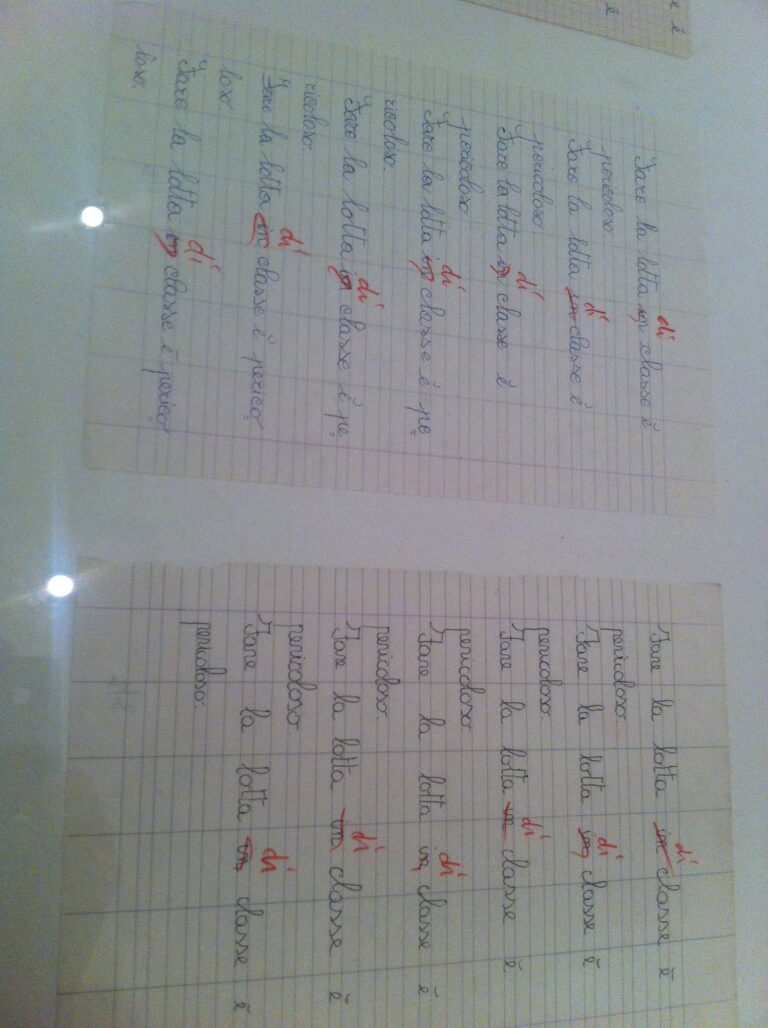 è
è
di
Fare la lotta in classe è
pericoloso.
di
Fare la lotta in classe è
pericoloso.
di
Fare la lotta in classe è
pericoloso
di
Fare la lotta in classe è pe
ricoloso.
di
Fare la lotta in classe è pe
ricoloso.
di
Fare la lotta in classe è perico
loso
di
Fare la lotta in classe è perico
loso.
di
Fare la lotta in classe è
pericoloso.
di
Fare la lotta in classe è
pericoloso.
di
Fare la lotta in classe è
pericoloso
di
Fare la lotta in classe è
pericoloso.
di
Fare la lotta in classe è
pericoloso
di
Fare la lotta in classe è
pericoloso.